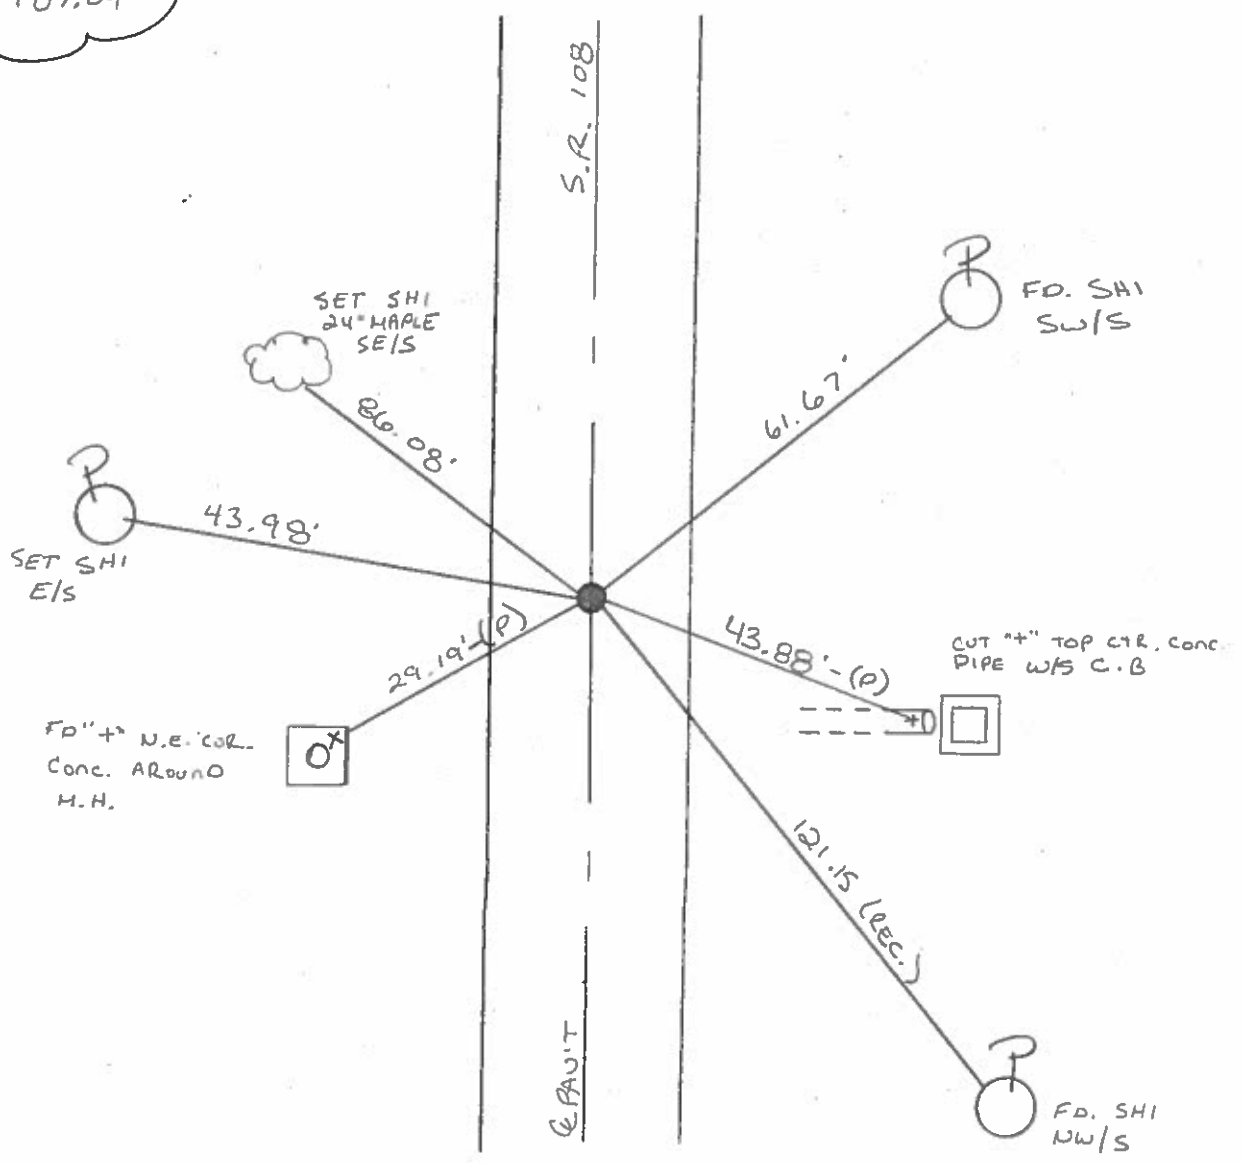 S.R. 108
SET SHI
24" MAPLE
SE/S
FD. SHI
SW/S
86.08'
61.67'
43.98'
SET SHI
E/S
29.19'-(P)
43.88'-(P)
CUT "+" TOP CTR. CONC.
PIPE W/S C.B
FD "+" N.E. COR.
CONC. AROUND
M.H.
121.15 (REC.)
℄ PAV'T
FD. SHI
NW/S